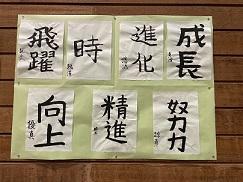 飛躍
時
進化
成長
向上
精進
努力